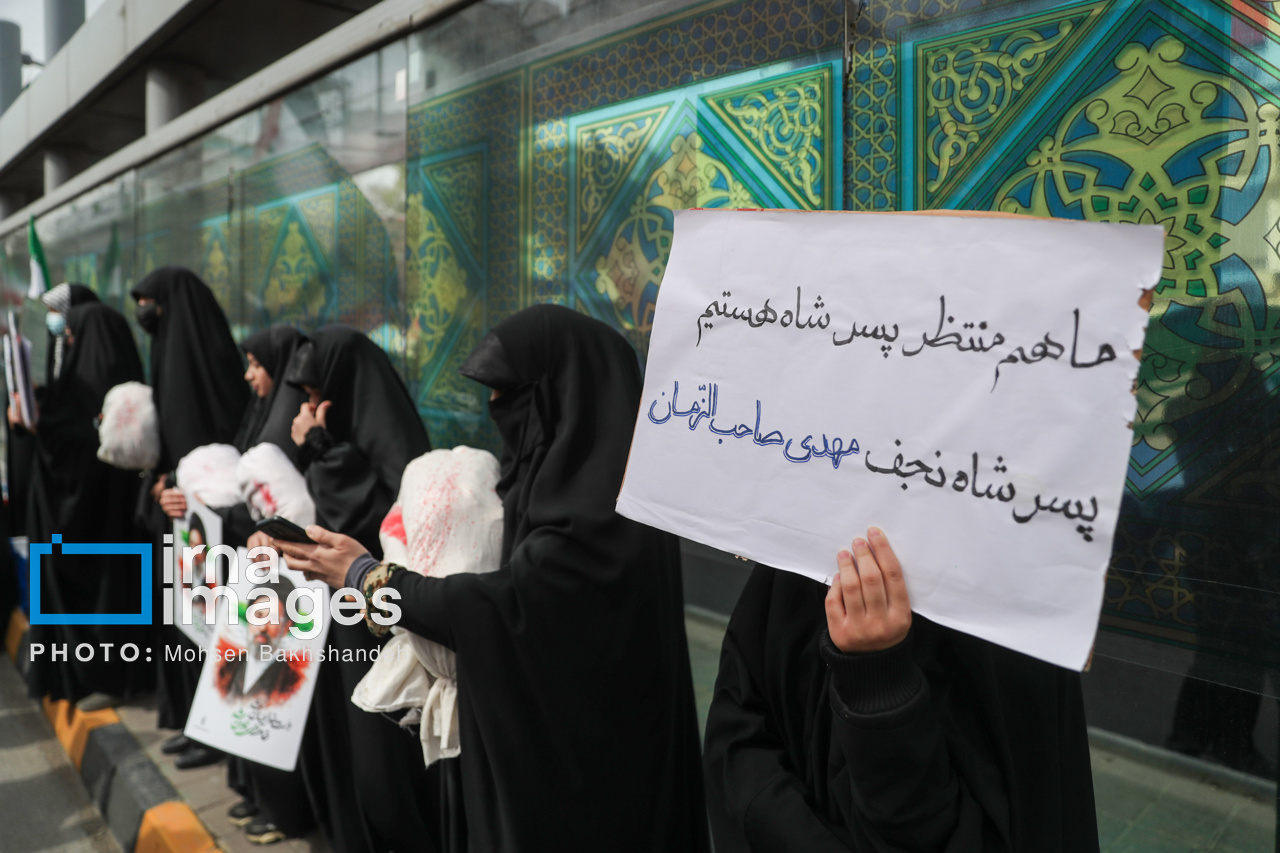 ما هم منتظر پسر شاه هستیم
پسر شاه نجف مهدی صاحب الزّمان
ima
images
PHOTO: Mohsen Bakhshandeh